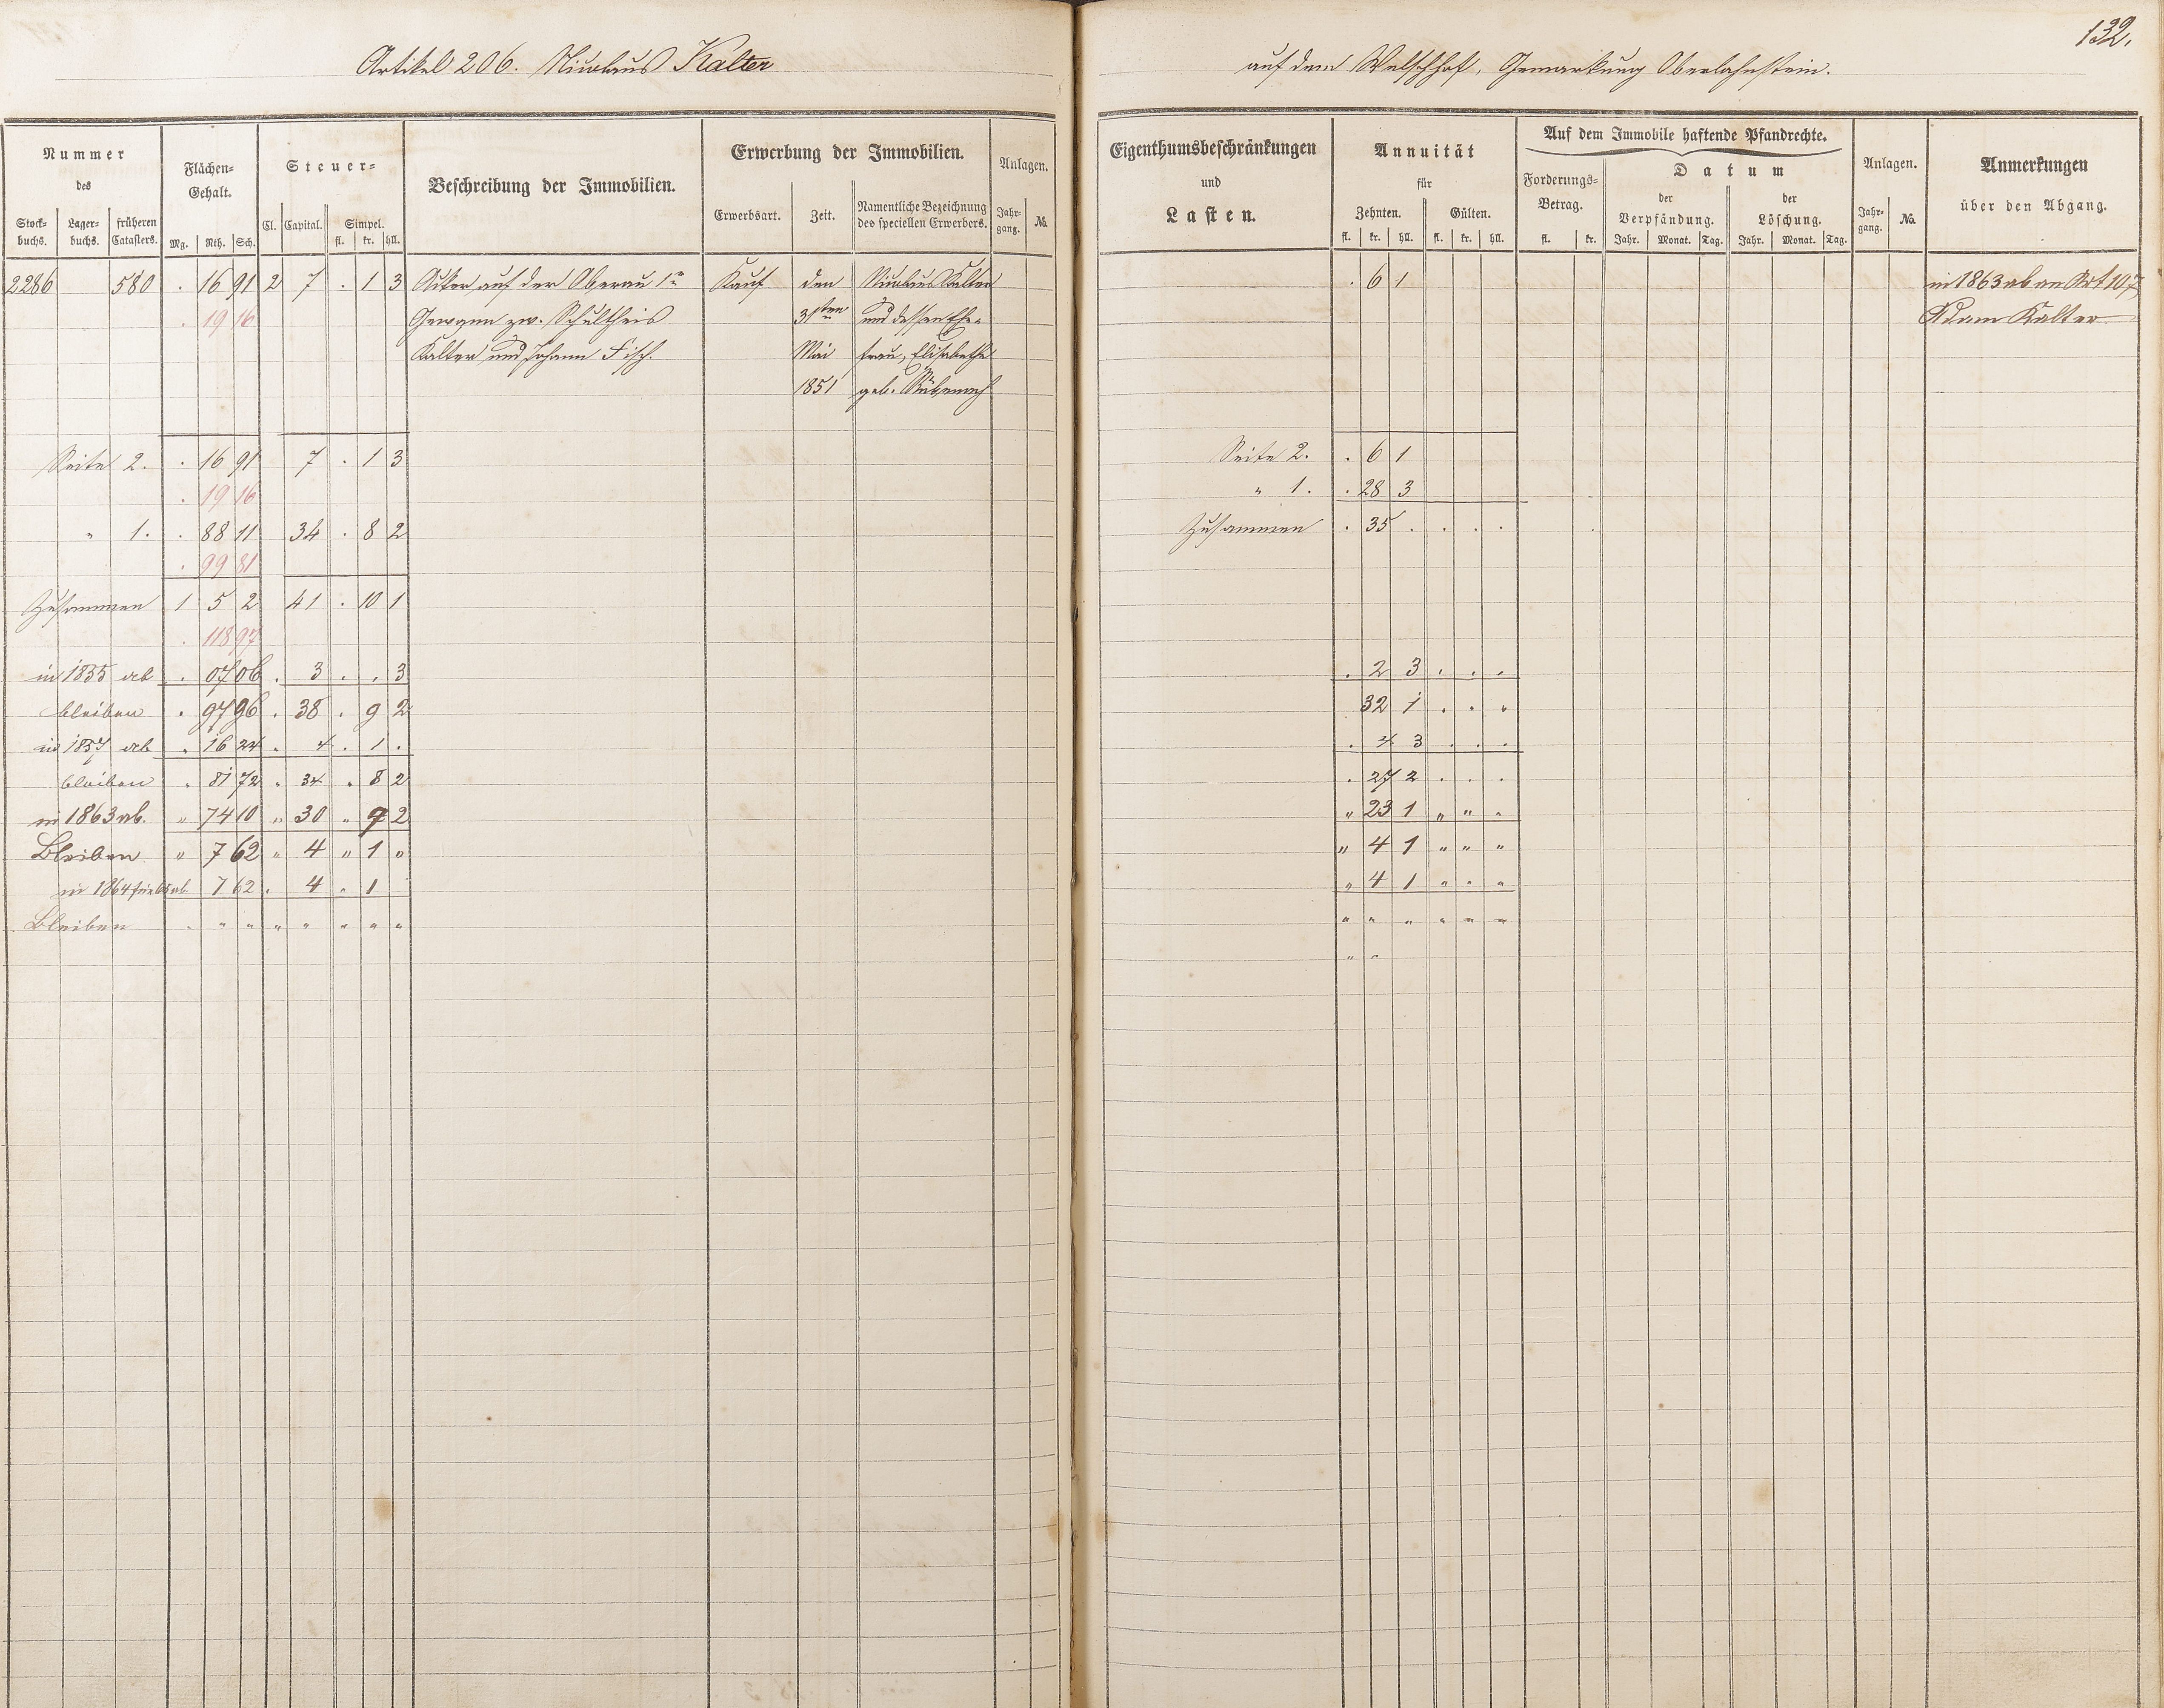 132.
Artikel 206. Nicolaus Kalter auf dem Welschhof, Gemarkung Oberlahnstein.
Nummer des
Stock-buchs. Lager-buchs. früheren Catasters.
Flächen-Gehalt.
Mg. Rth. Sch.
Steuer-
Cl. Capital. Simpel. fl. kr. hll.
Beschreibung der Immobilien.
Erwerbung der Immobilien.
Erwerbsart. Zeit. Namentliche Bezeichnung des speciellen Erwerbers.
Anlagen. Jahr-gang. No.
Eigenthumsbeschränkungen und Lasten.
Annuität für
Zehnten. Gülten.
fl. kr. hll. fl. kr. hll.
Auf dem Immobile haftende Pfandrechte.
Forderungs-Betrag. fl. kr.
Datum
der Verpfändung. der Löschung.
Jahr. Monat. Tag. Jahr. Monat. Tag.
Anlagen. Jahr-gang. No.
Anmerkungen über den Abgang.
2286 580 . 16 91 2 7 . 1 3 Acker auf der Oberau 1r Kauf den Nicolaus Kalter . 6 1 in 1863 ab an Art 107,
. 19 16 Gewann zw. Schultheis 31ten und dessen Ehe- Adam Kalter
Kalter und Johann Fisch. Mai frau, Elisabetha
1851 geb. Rübenach
Seite 2. . 16 91 7 . 1 3 Seite 2. . 6 1
. 19 16 " 1. . 28 3
" 1. . 88 11 34 . 8 2 Zusammen . 35 . . . .
. 99 81
Zusammen 1 5 2 41 . 10 1
. 118 97
in 1855 ab . 07 06 . 3 . . 3 . 2 3 . . .
bleiben . 97 96 . 38 . 9 2 32 1 . . .
in 1857 ab . 16 24 . 4 . 1 . . 4 3 . . .
bleiben . 81 72 . 34 . 8 2 . 27 2 . . .
in 1863 ab. " 74 10 " 30 " 7 2 " 23 1 " " "
Bleiben " 7 62 " 4 " 1 " " 4 1 " " "
in 1864 ab. 7 62 . 4 . 1 " 4 1 " " "
Bleiben " " " " " " " " " " " " " "
" "